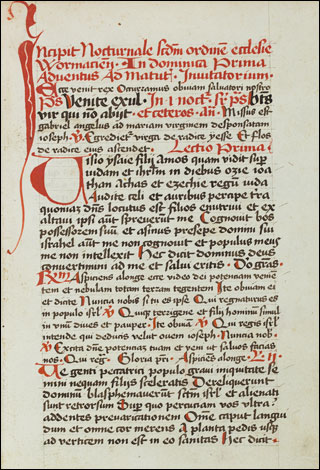 Incipit Nocturnale scdm ordinē ecclesie
Wormacieñ · In dominica Prima
Adventus Ad Matut̃ · Invitatorium ·
Ecce venit rex Occuramus obuiam saluatori nostro
p̃s Venite exul · In i noct̃ s̃ p̃s bts
vir qui nō abijt · et ceteros · añ · Missus est
gabriel angelus ad mariam virginem desponsatam
ioseph · v̄ Egrediet̃ virga de radice yesse Et flos
de radice eius ascendet · Lectio Prima ·
Visio ysaie filij Amos quam vidit sup̱
iudam et ihrlm in diebus ozie ioa
than Achas et ezechie regū iuda
Audite celi et auribus percipe tr̃a
quoniaz dn̄s locutus est filios enutriui et ex
altaui ipsi aūt spreuerūt me Cognouit bos
possessorem suū · et asinus presepe domini sui
israhel aūt me non cognouit et populus meus
me non intellexit Hec dicit dominus deus
conuertimini ad me et salui eritis · Do gr̃as ·
Rm̄ Aspiciens alonge ecce video dei potenciam venien
tem et nebulam totam terram tegentem Ite obuiam ei
et dicite Nuncia nobis si tu es ipse Qui regnaturus es
in populo isrl̄ v̄ Quiq̄ terrigene et filij hominū simul
in vnū diues et pauper · Ite obuiā v̄ Qui regis isrl̄
intende qui deducis velut ouem ioseph · Nuncia nob̄
v̄ Excita dn̄e potenciaz tuam et veni ut saluos facias
nos · Qui reg̃ · Gloria pr̃i · Aspiciens alonge · L̃ ij ·
Ve genti peccatrici populo graui iniquitate se
mini nequam filijs sceleratis Dereliquerunt
dominū blasphemauerūt sctm̄ isrl̄ et alienati
sunt retrorsum Sup̱ quo percutiam vos vltra ?
addentes preuaricationem Om̄e caput langui
dum et omne cor merens A planta pedis usq̄
ad verticem non est in eo sanitas Hec dicit ·